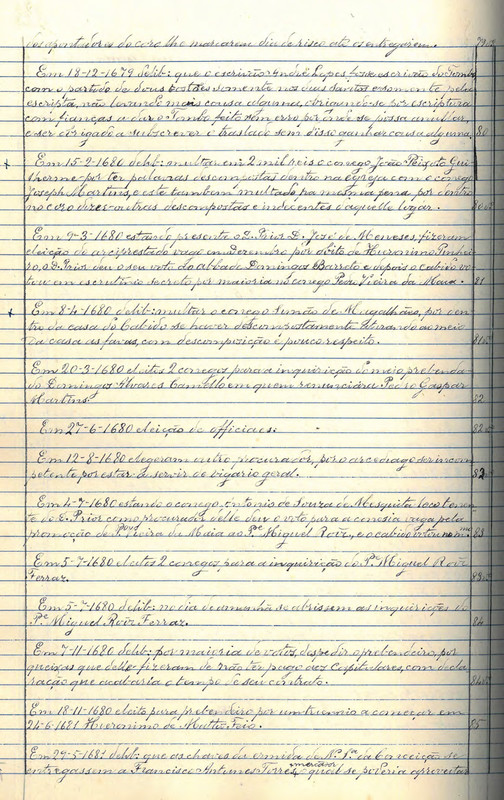 dos apontadores do coro lhe marcarem dia de risco até os entregarem. 79 v
Em 18-12-1679 delib: que o escrivão André Lopes fosse escrivão do Tombo
com o partido de dous tostões somente nos dias santos e somente pela
escripta, não levando mais cousa alguma, obrigando-se por escriptura
com fianças a dar o Tombo feito sem erro por onde se possa anullar,
e ser obrigado a subscrever o traslado sem disso ganhar cousa alguma. 80
x Em 15-2-1680 delib: multar em 2 mil reis o conego João Gui-
lherme por ter palavras descompostas dentro na egreja com o conego
Joseph Martins, e este tambem multado na mesma pena, por dentro
no coro dizer outras descompostas e indecentes a aquelle lugar. 80 v
Em 9-3-1680 estando presente o D. Prior D. José de Meneses, fizeram
eleição de arciprestado vago em Dezembro por obito de Hieronimo Pinhei-
ro, o D. Prior deu o seu voto ao abbade Domingos Barreto e depois o cabido vo-
tou em escrutinio secreto, por maioria no conego Pedro Vieira da Maia. 81
x Em 8-4-1680 delib: multar o conego Simão de Magalhães, por den-
tro da casa do Cabido se haver descompostamente atirando ao meio
da casa as favas, com descomposição e pouco respeito. 81 v
Em 20-3-1680 eleitos 2 conegos para a inquirição do meio prebenda-
do Domingos Alvares Camello em quem renunciára Pedro Gaspar
Martins. 82
Em 27-6-1680 eleição de officiaes. 82 v
Em 12-8-1680 elegeram outro procurador, por o arcediago ser incom-
petente por estar a servir de vigario geral. 82
Em 4-7-1680 estando o conego Antonio de Souza de Mesquita loco tenen-
te do D. Prior como procurador delle deu o voto para a conesia vaga pela
promoção de Pedro Vieira da Maia ao Pe. Miguel Roiz, e o cabido votou no mmo 83
Em 5-7-1680 eleitos 2 conegos para a inquirição do P. Miguel Roiz
Ferraz. 83 v
Em 5-7-1680 delib: no dia de amanhã se abrissem as inquirições do
Pe. Miguel Roiz Ferraz. 84
Em 7-11-1680 delib: por maioria de votos, despedir o prebendeiro, por
queixas que delle fizeram de não ter pago aos capitulares, com decla-
ração que acabaria o tempo do seu contrato. 84 v
Em 18-11-1680 eleito para prebendeiro por um triennio a começar em
24-6-1681 Hieronimo de Mattos Feio. 85
Em 29-5-1681 delib: que as chaves da ermida de N. Sra. da Conceição se
entregassem a Francisco Antunes Torres, morador qual se poderia aproveitar